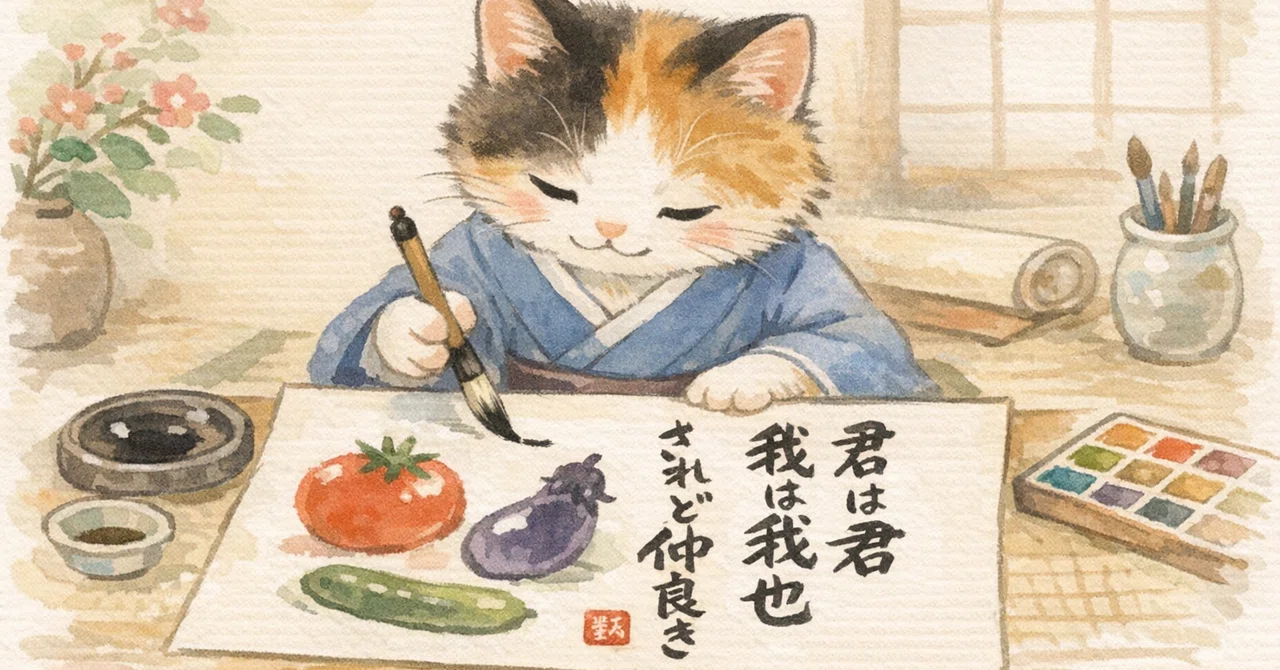 君は君
我は我也
されど仲良き